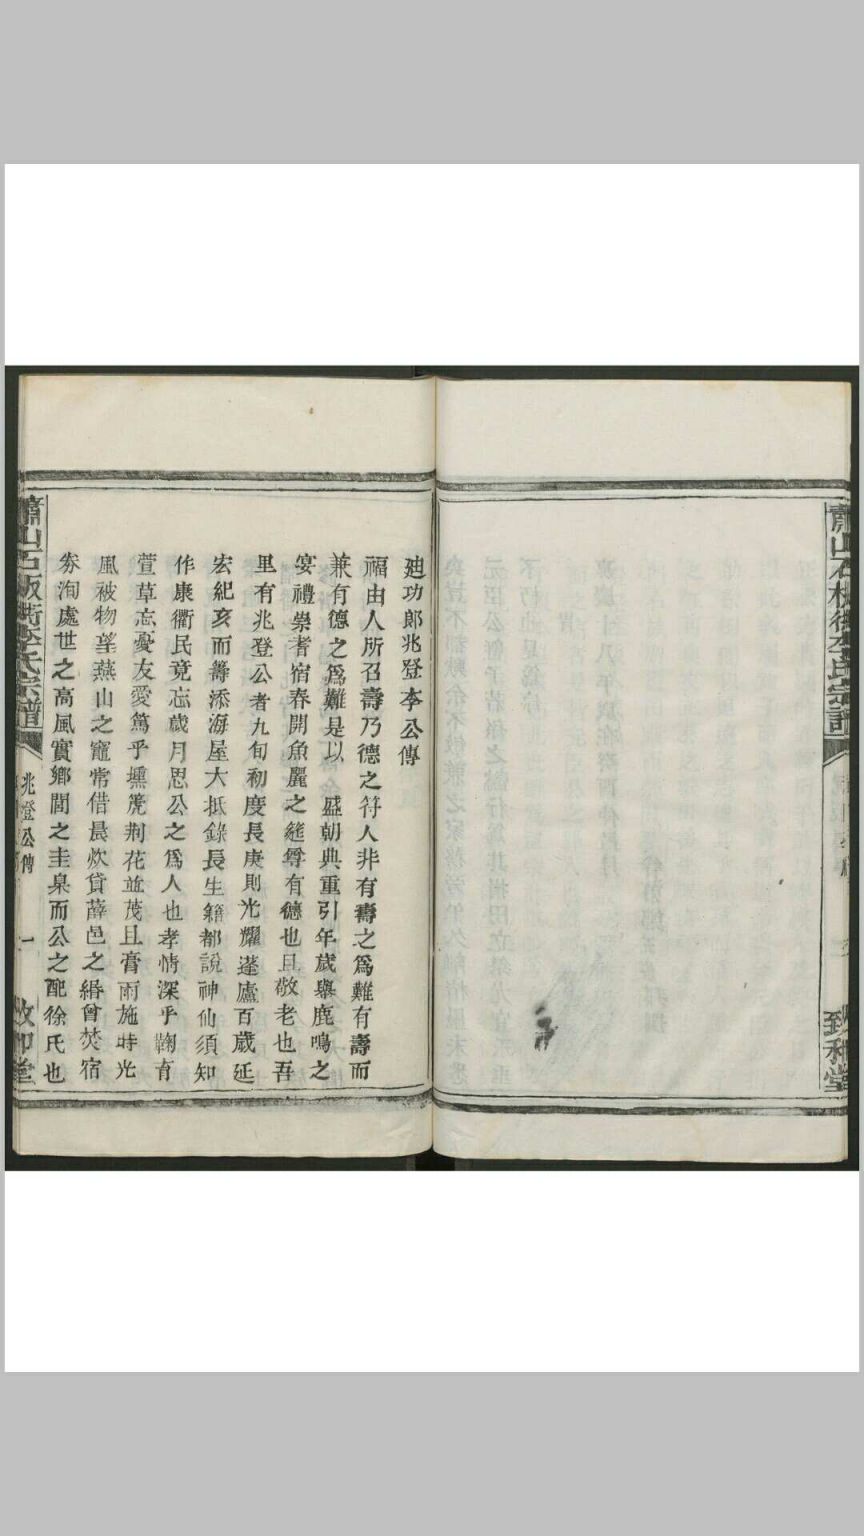 蕭山石板衖李氏宗譜
致和堂
廸功郎兆登李公傳
福由人所召壽乃德之符人非有壽之爲難有壽而
兼有德之爲難是以　盛朝典重引年歲舉鹿鳴之
宴禮崇耆宿春開魚麗之筵尊有德也且敬老也吾
里有兆登公者九旬初度長庚則光耀蓬廬百歲延
宏紀亥而籌添海屋大抵錄長生籍都說神仙須知
作康衢民竟忘歲月思公之爲人也孝情深乎鞠育
萱草忘憂友愛篤乎壎箎荆花並茂且膏雨施時光
風被物望燕山之竈常借晨炊貸薛邑之緡曾焚宿
劵洵處世之高風實鄉閭之圭臬而公之配徐氏也
蕭山石板衖李氏宗譜
兆登公傳
一
致和堂